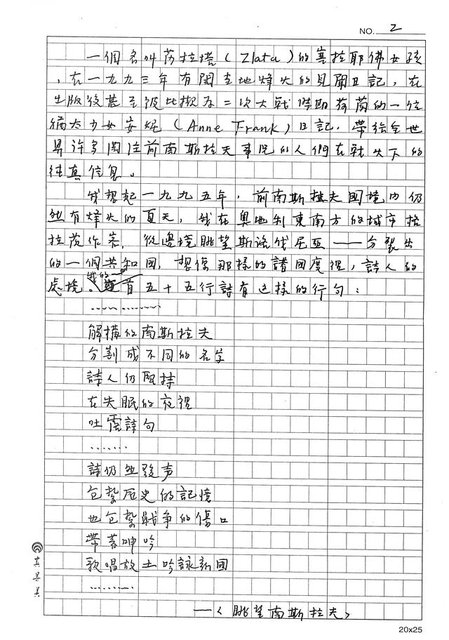 NO. 2
一個名叫莎拉塔(Zlata)的塞拉耶佛女孩
,在一九九三年有關當地烽火的見聞日記,在
出版後甚至被比擬為二次大戰時期荷蘭的一位
猶太少女安妮(Anne Frank)日記,帶給全世
界許多關注前南斯拉夫事況的人們在戰火下的
純真信息。
我想起一九九五年,前南斯拉夫國境內仍
然有烽火的夏天,我在奧地利東南方的城市格
拉茨作客,從邊境眺望斯洛伐尼亞——分裂出
的一個共和國,想像那樣的諸國度裡,詩人的
處境,我的一首五十五行詩有這樣的行句:
………
解構的南斯拉夫
分割成不同的名字
詩人仍堅持
在失眠的夜裡
吐露詩句
……
詩仍然發聲
包紮歷史的記憶
也包紮戰爭的傷口
帶著呻吟
歌唱故土吟詠新國
………
——〈眺望南斯拉夫〉
20x25